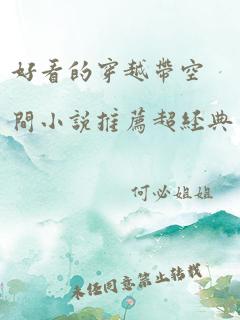 好看的穿越帶空
間小說推薦超經典
何必姐姐
未经同意禁止转载